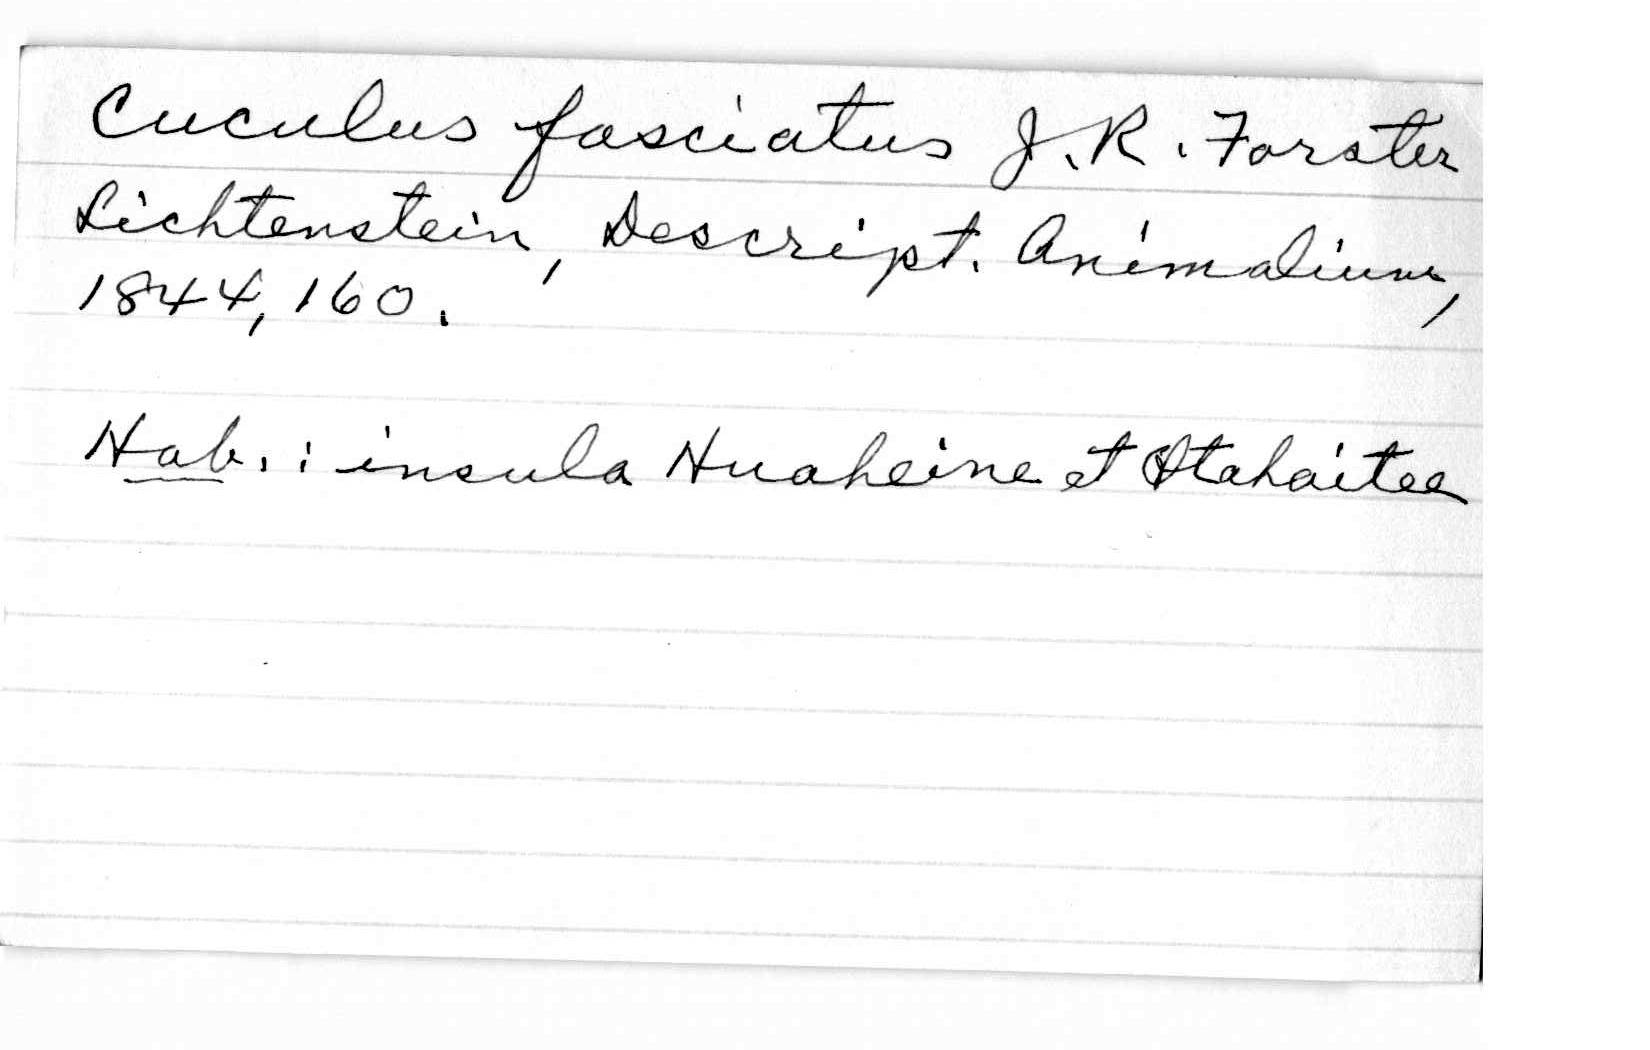 Cuculus fasciatus J.R. Forster
Lichtenstein, Descript. Animalium,
1844, 160.
Hab.: insula Huaheine et Otahaitee